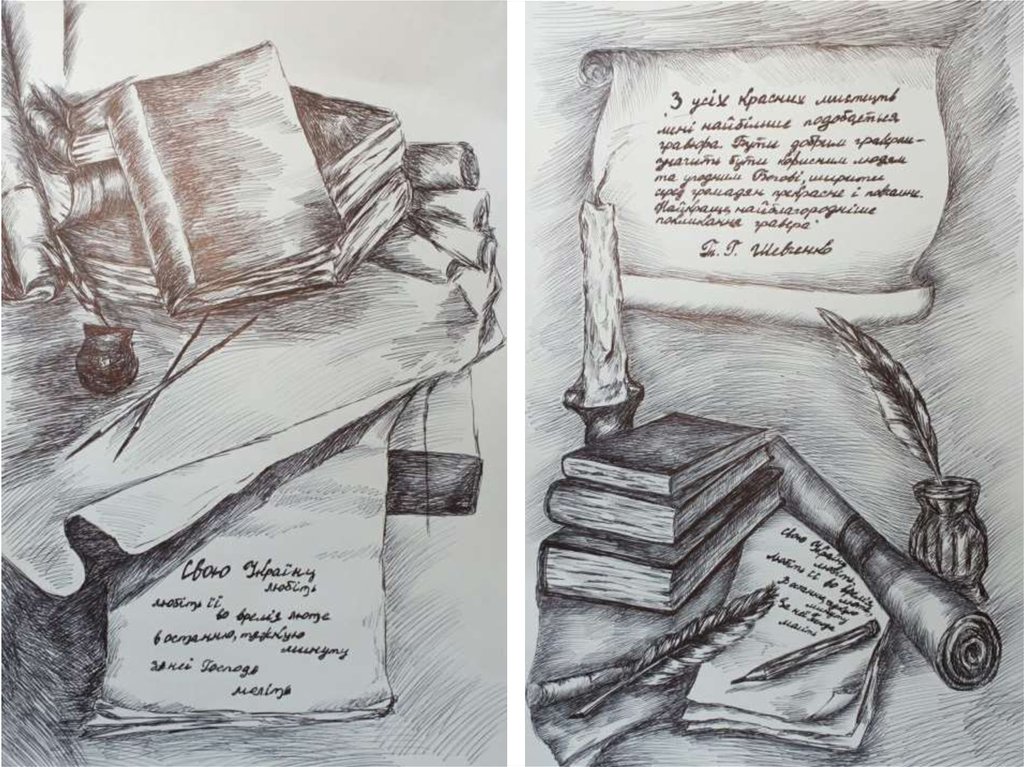 Свою Україну
любіть
любіть її
во время люте
в останню, тяжкую
минуту
за неї Господа
моліть
З усіх красних мистецтв
мені найбільше подобається
гравюра. Бути добрим гравером-
значить бути корисним людям
та угодним Богові, ширити
серед громадян прекрасне і повчальне.
Найкраще, найблагородніше
покликання гравера
Т. Г. Шевченко
Свою Україну
любіть,
любіть її во время люте
В останню, тяжкую
минуту
За неї Господа
моліть